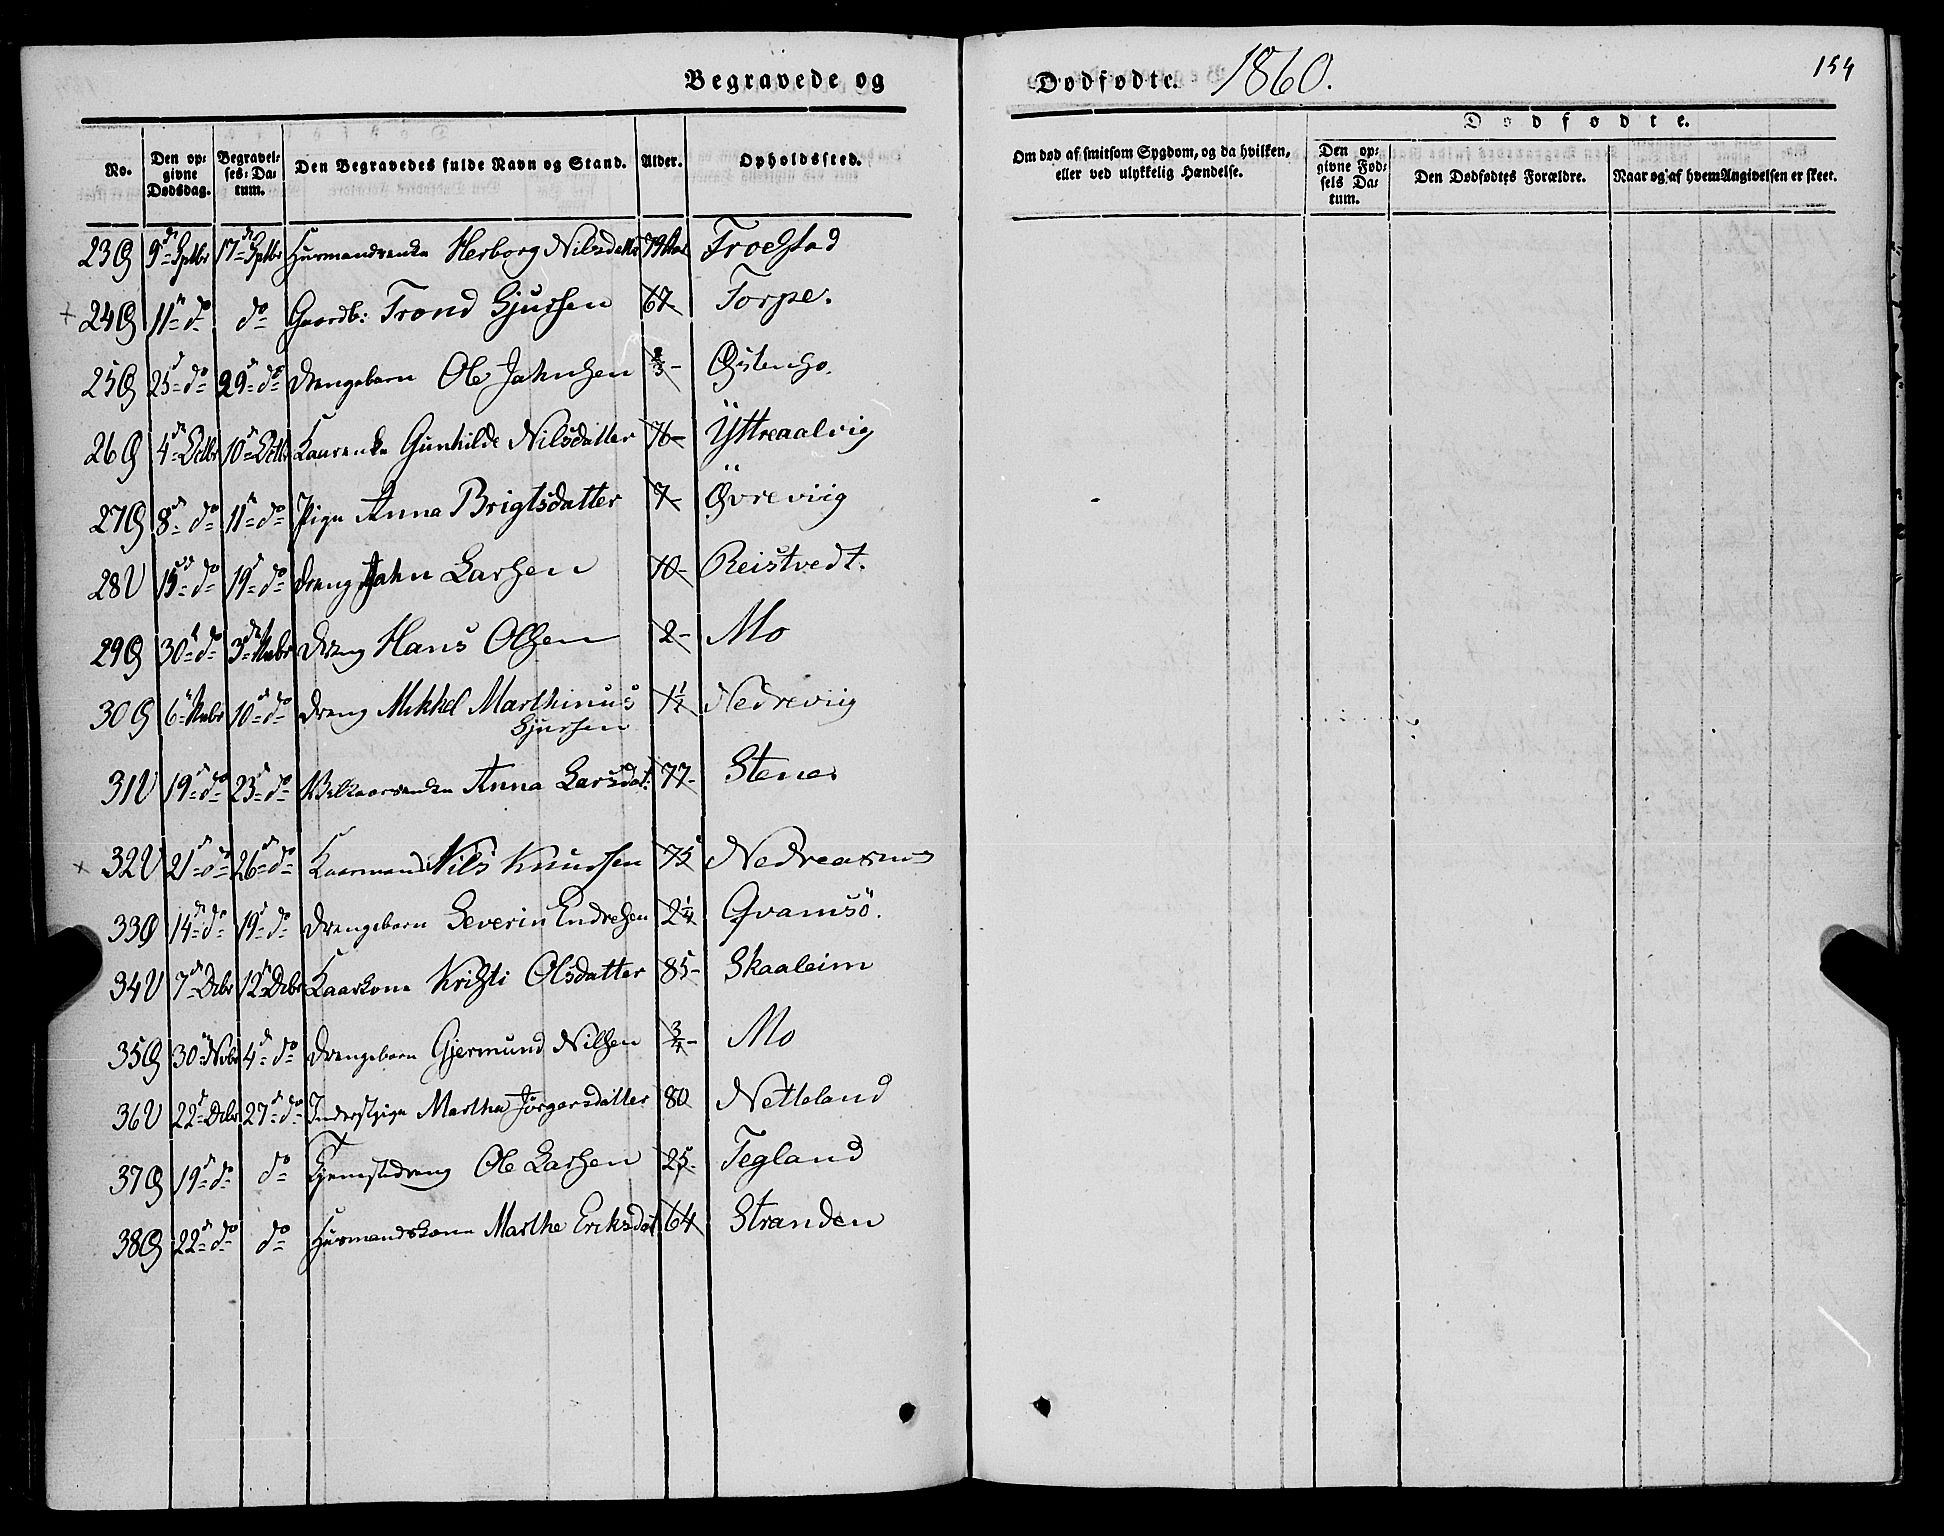 Begravede og
No. Den opgivne Dødsdag. Begravelses-Datum. Den Begravedes fulde Navn og Stand. Alder. Opholdssted.
23 9de Sptbr 17de Sptbr Huusmandsenke Herborg Nilsdatter 79 Aar Froestad
+ 24 11te do do Gaardb: Trond Gjursen 67 Torpe.
25 25de do 29de do Drengebarn Ole Jahnsen 2/3 - Østensø.
26 4de Octbr 10de Octbr Kaarenke Gunhilde Nilsdatter 76 - Yttreaalvig
27 8de do 11te do Pige Anna Brigtsdatter 7 - Øvreviig
28 15de do 19de do Dreng Jahn Larsen 10 - Reistvedt.
29 30te do 3die Nvbr Dreng Hans Olsen 2 - Mo
30 6te Nvbr 10de do Dreng Mikkel Marthinus Nedreviig
Gjursen
31 19de do 23de do Vilkaarsenke Anna Larsdat: 77 - Steine
+ 32 21de do 26de do Kaarmand Nils Knudsen 75 Nedreaxnes
33 14de do 19de do Drengebarn Severin Endresen 2 1/4 Qvamsö.
34 7de Dcbr 12te Dcbr Kaarkone Kristi Olsdatter 85 - Skaaleim
35 30te Nvbr 4de do Drengebarn Gjermund Nilsen 3/4 - Mo
36 22de Dcbr 27de do Inderstpige Martha Jørgersdatter 80 Netteland
37 19de do do Tjenestedreng Ole Larsen 25 - Tegland
38 22de do do Huusmandskone Marthe Eriksdat 64 Stranden
Dødfødte. 1860. 154
Dødfødte.
Om død af smitsom Sygdom, og da hvilken, eller ved ulykkelig Hændelse. Den opgivne Fødsels Datum. Den Dødfødtes Forældre. Naar og af hvem Angivelsen er skeet.